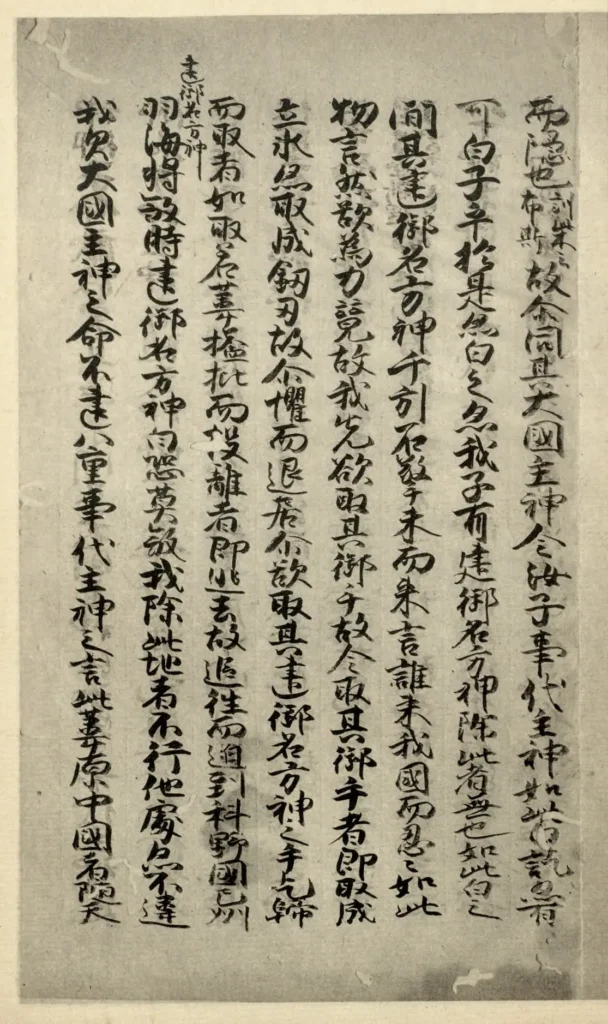 而隠也訓柴云布斯故尓問其大國主神今汝子事代主神如此白訖亦有
可白子乎於是亦白之亦我子有建御名方神除此者無也如此白之
間其建御名方神千引石擎手末而来言誰来我國而忍々如此
物言然欲為力競故我先欲取其御手故令取其御手者即取成
立氷亦取成釼刃故尓懼而退居尓欲取其建御名方神之手乞歸
而取者如取若葦搤批而投離者即逃去故追往而迫到科野國之州
建御名方神
羽海将殺時建御名方神白恐莫殺我除此地者不行他處亦不違
我父大國主神之命不違八重事代主神之言此葦原中國者隨天